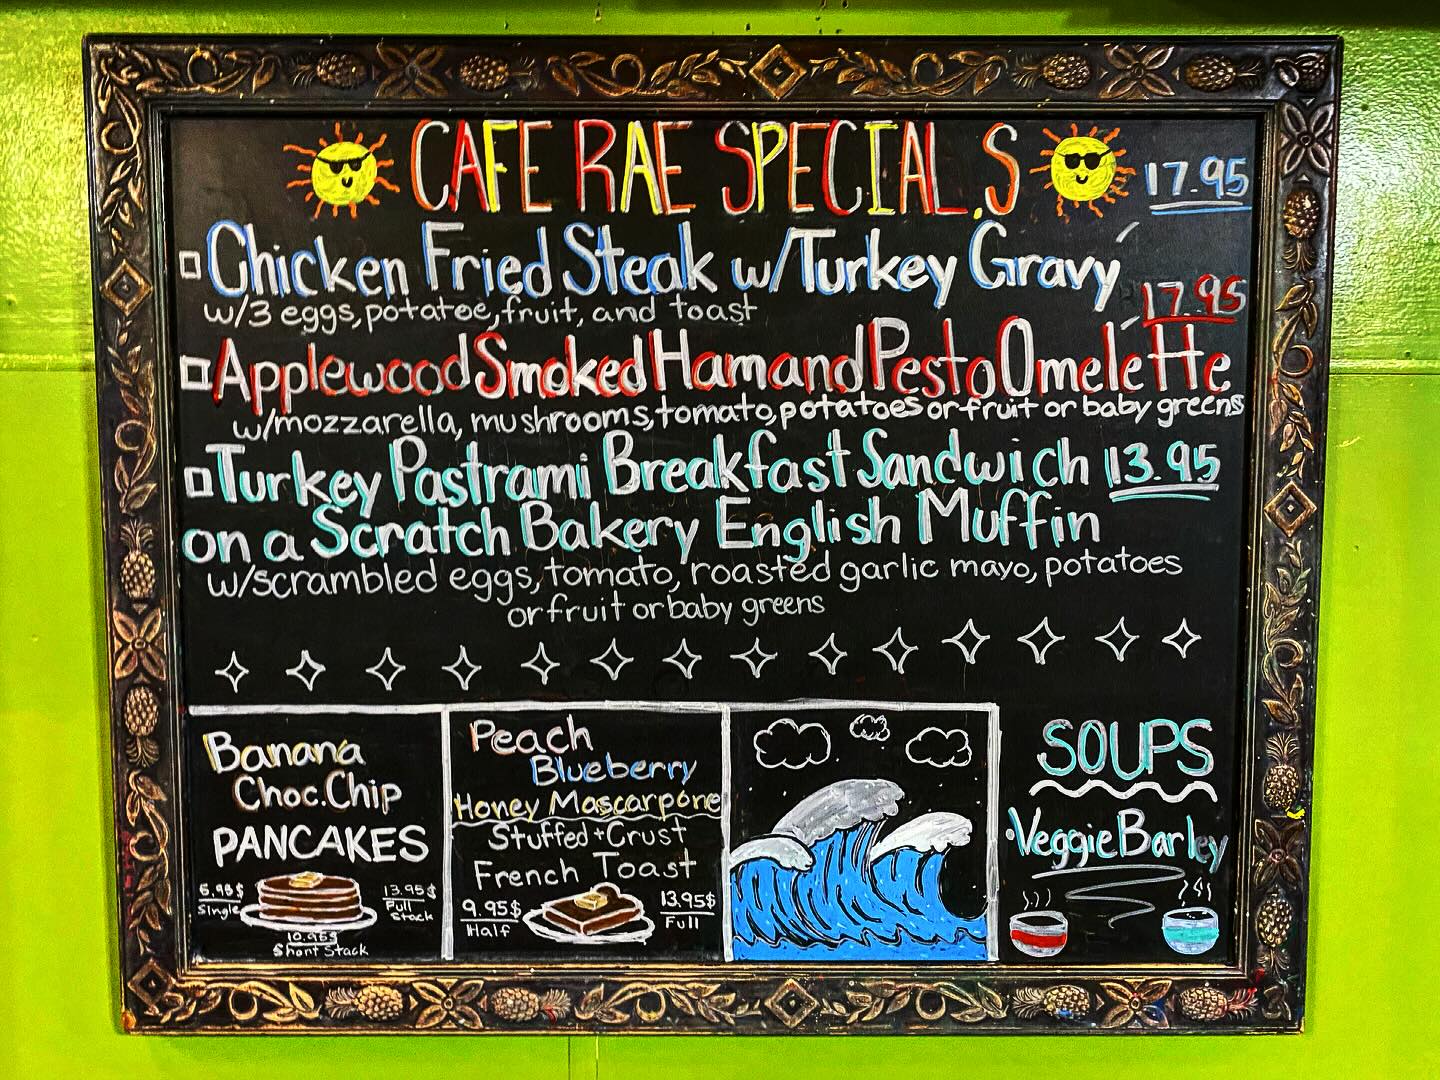 CAFE RAE SPECIALS
17.95
Chicken Fried Steak w/Turkey Gravy
w/3 eggs, potatoe, fruit, and toast
17.95
Applewood Smoked Ham and Pesto Omelette
w/mozzarella, mushrooms, tomato, potatoes or fruit or baby greens
Turkey Pastrami Breakfast Sandwich 13.95
on a Scratch Bakery English Muffin
w/scrambled eggs, tomato, roasted garlic mayo, potatoes
or fruit or baby greens
Banana
Choc. Chip
PANCAKES
6.95$
Single
13.95$
Full
Stack
10.95$
Short Stack
Peach
Blueberry
Honey Mascarpone
Stuffed + Crust
French Toast
9.95$
Half
13.95$
Full
SOUPS
Veggie Barley